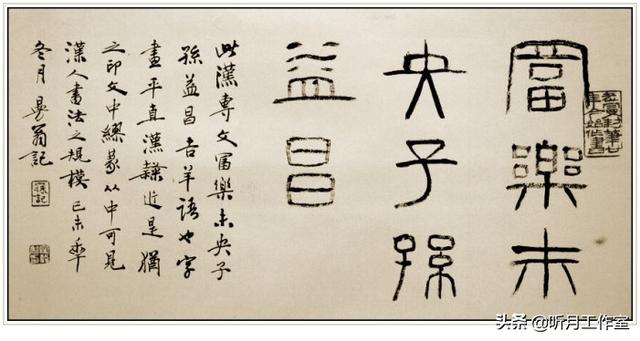 富樂未
央子孫
益昌
此漢專文冨樂未央子
孫益昌吉羊語也字
畫平直漢隸近是猶
之印文中繆篆从中可見
漢人書法之規模己未年
冬月 翁記
头条 @听月工作室